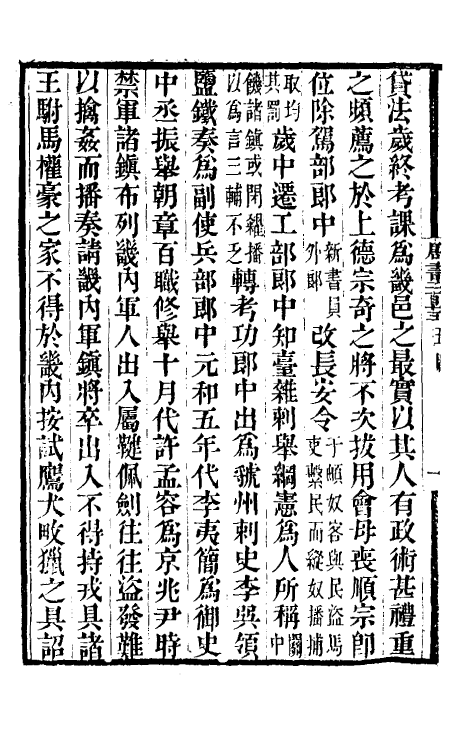 貸法歲終考課爲畿邑之最實以其人有政術甚禮重
之頻薦之於上德宗奇之將不次拔用會母喪順宗卽
位除駕部郎中新書員外郎改長安令于頔奴客與民盜馬吏繫民而縱奴播捕
取均其罰歲中遷工部郎中知臺雜刺舉綱憲爲人所稱關中
饑諸鎮或閉糴播以爲言三輔不乏轉考功郎中出爲虢州刺史李吳領
鹽鐵奏爲副使兵部郎中元和五年代李夷簡爲御史
中丞振舉朝章百職修舉十月代許孟容爲京兆尹時
禁軍諸鎮布列畿內軍人出入屬鞬佩劍往往盜發難
以擒姦而播奏請畿內軍鎮將卒出入不得持戎具諸
王駙馬權豪之家不得於畿內按試鷹犬畋獵之具詔